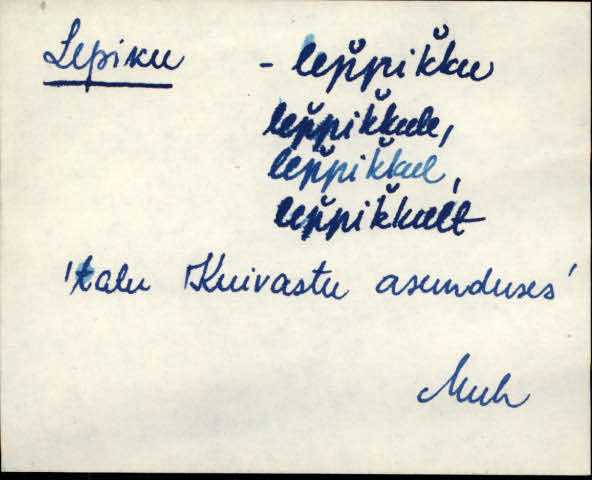 Lepiku - lep̌p̌ik̆k̆u
lep̌p̌ik̆k̆ule,
lep̌p̌ik̆k̆ul,
lep̌p̌ik̆k̆ult
'talu Kuivastu asunduses'
Muh